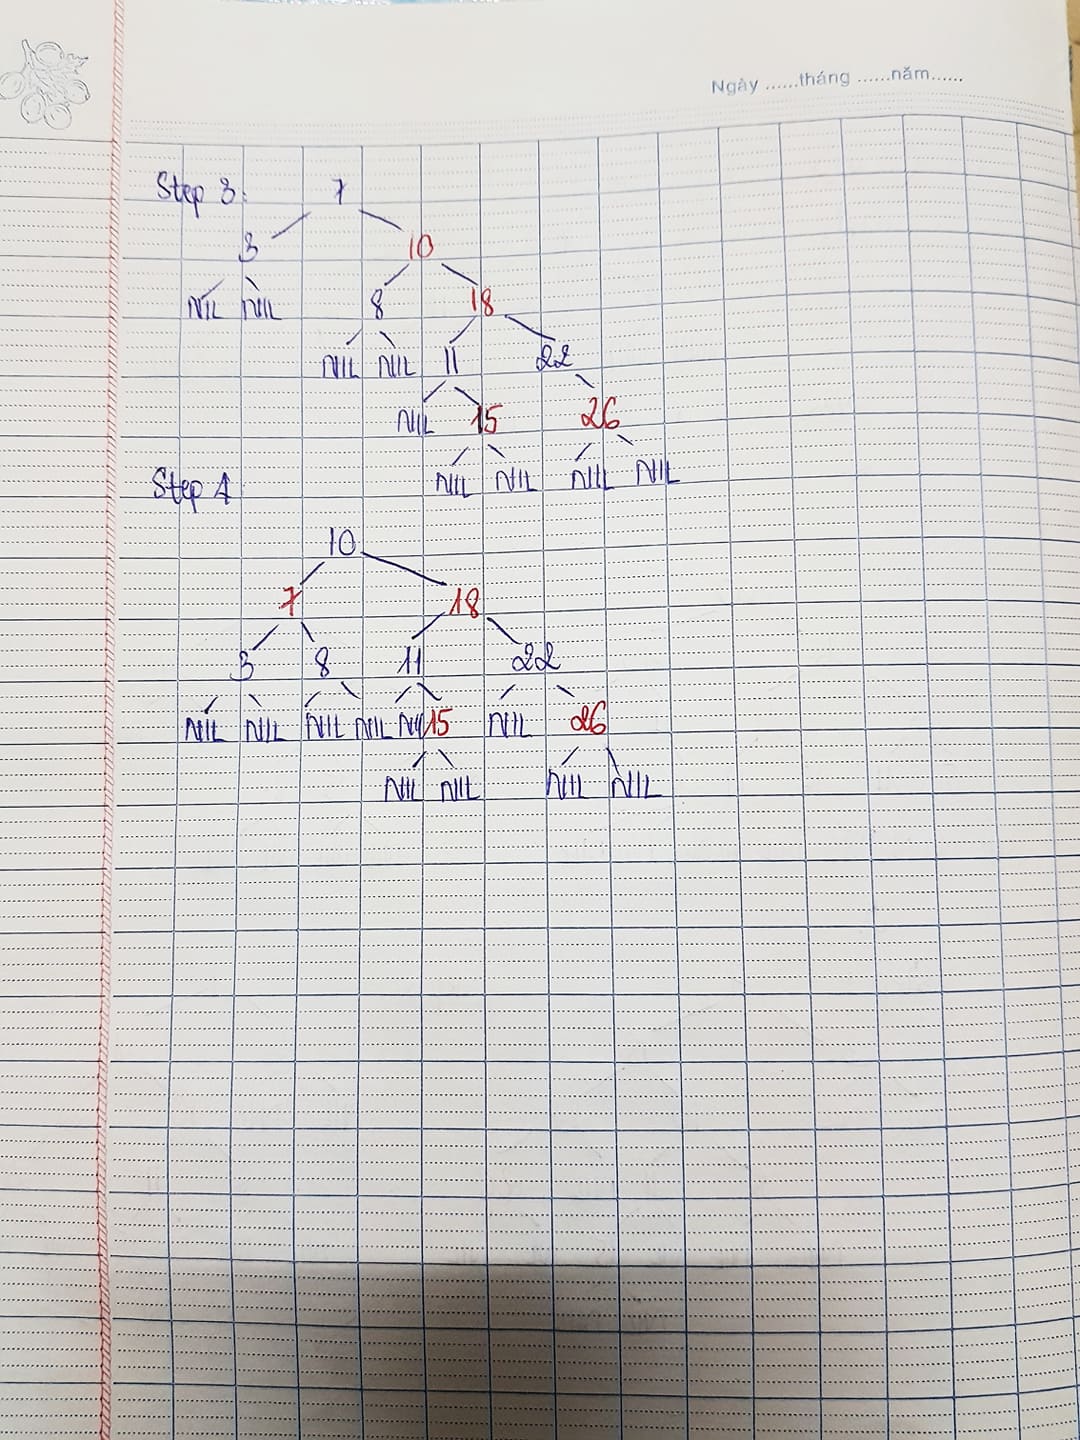 Ngày ......tháng ......năm......
Step 3: 7
3 10
NIL NIL 8 18
NIL NIL 11 22
NIL 15 26
NIL NIL NIL NIL
Step 4
10
7 18
3 8 11 22
NIL NIL NIL NIL NIL 15 NIL 26
NIL NIL NIL NIL